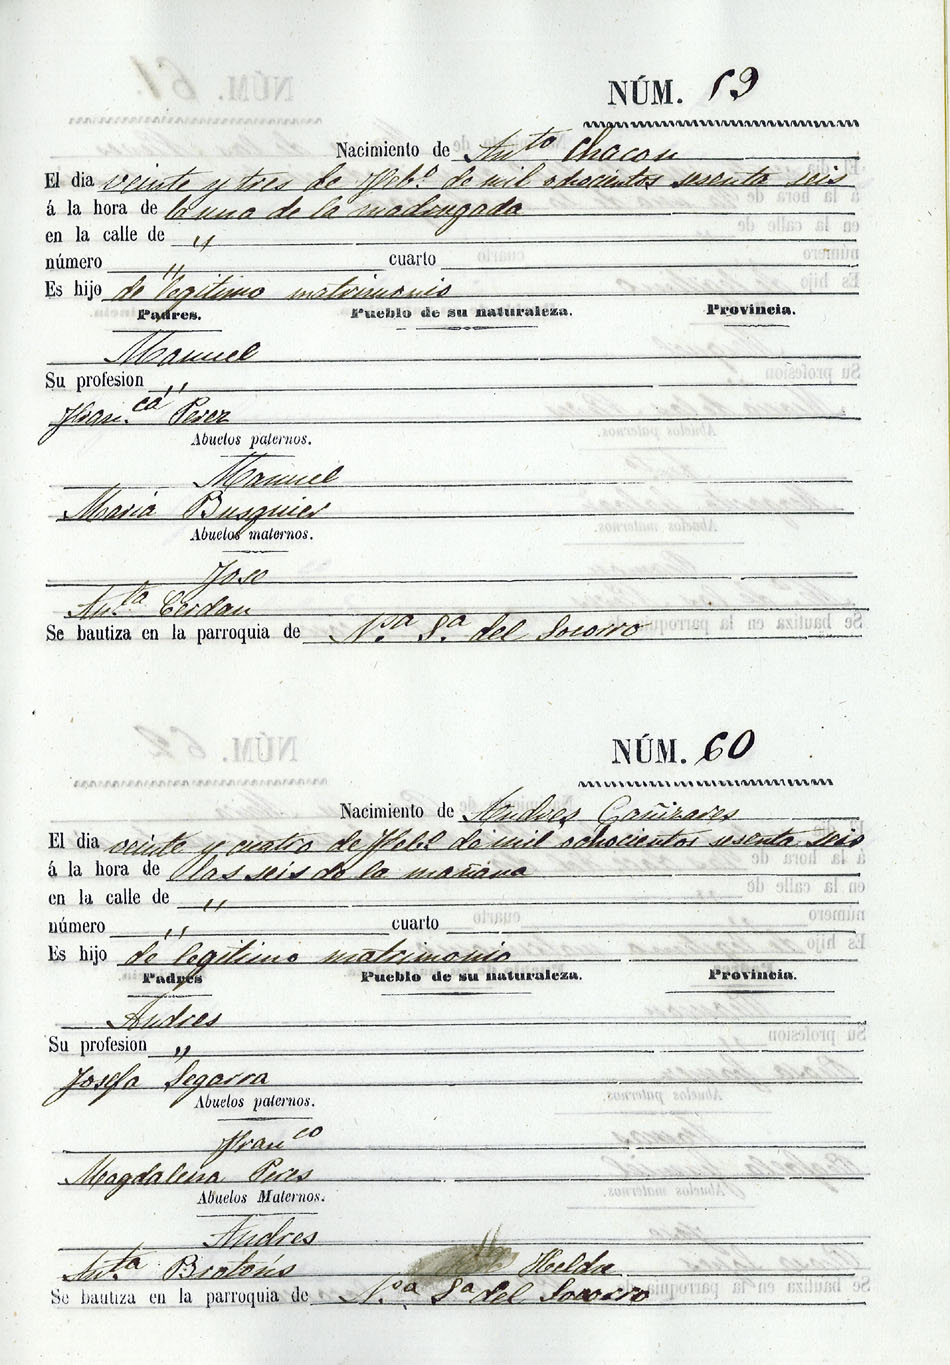 NÚM. 59
Nacimiento de Anto Chacon
El dia veinte y tres de Feb.o de mil ochocientos sesenta seis
á la hora de la una de la madrugada
en la calle de "
número " cuarto
Es hijo de legitimo matrimonio
Padres. Pueblo de su naturaleza. Provincia.
Manuel
Su profesion "
Fran.ca Perez
Abuelos paternos.
Manuel
Maria Busquier
Abuelos maternos.
Jose
An.ta Cerdan
Se bautiza en la parroquia de N.a S.a del Socorro
NÚM. 60
Nacimiento de Andres Cañizares
El dia veinte y cuatro de Feb.o de mil ochocientos sesenta seis
á la hora de las seis de la mañana
en la calle de "
número " cuarto
Es hijo de legitimo matrimonio
Padres Pueblo de su naturaleza. Provincia.
Andres
Su profesion "
Josefa Segarra
Abuelos paternos.
Franco
Magdalena Peres
Abuelos Maternos.
Andres
An.ta Brotons
Se bautiza en la parroquia de N.a S.a del Socorro